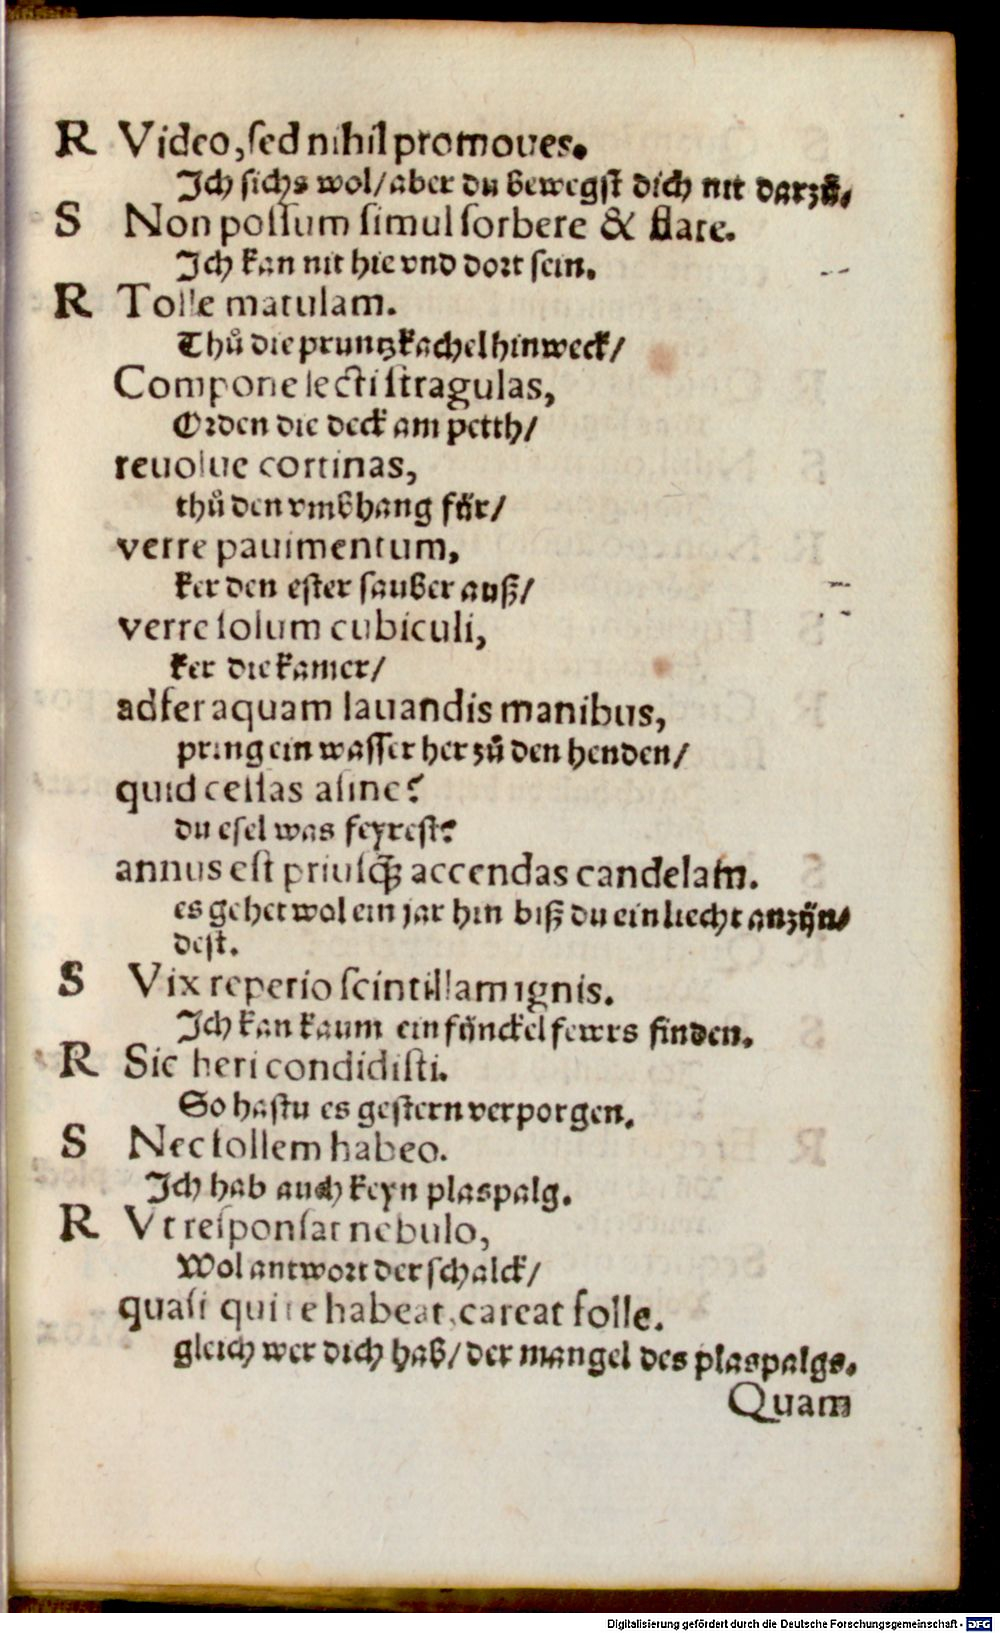 R Video, ſed nihil promoues.
Ich ſichs wol/ aber du bewegſt dich nit darzů.
S Non poſſum ſimul ſorbere & flare.
Ich kan nit hie vnd dort ſein.
R Tolle matulam.
Thů die pruntzkachel hinweck/
Compone lecti ſtragulas,
Orden die deck am petth/
reuolue cortinas,
thů den vmbhang für/
verre pauimentum,
ker den eſter ſauber auß/
verre ſolum cubiculi,
ker die kamer/
adfer aquam lauandis manibus,
pring ein waſſer her zů den henden/
quid ceſſas aſine?
du eſel was feyreſt?
annus eſt priuſq̃ȝ accendas candelam.
es gehet wol ein jar hin biß du ein liecht anzün/
deſt.
S Vix reperio ſcintillam ignis.
Ich kan kaum ein fünckel fewrs finden.
R Sic heri condidiſti.
So haſtu es geſtern verporgen.
S Nec follem habeo.
Ich hab auch keyn plaspalg.
R Vt reſponſat nebulo,
Wol antwort der ſchalck/
quaſi qui te habeat, careat folle.
gleich wer dich hab/ der mangel des plaspalgs.
Quam
Digitalisierung gefördert durch die Deutsche Forschungsgemeinschaft - DFG